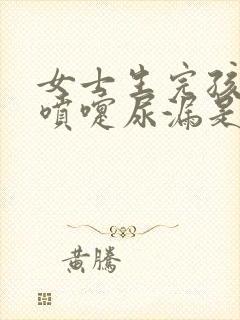 女士生完孩
喷嚏尿漏是
黄腾